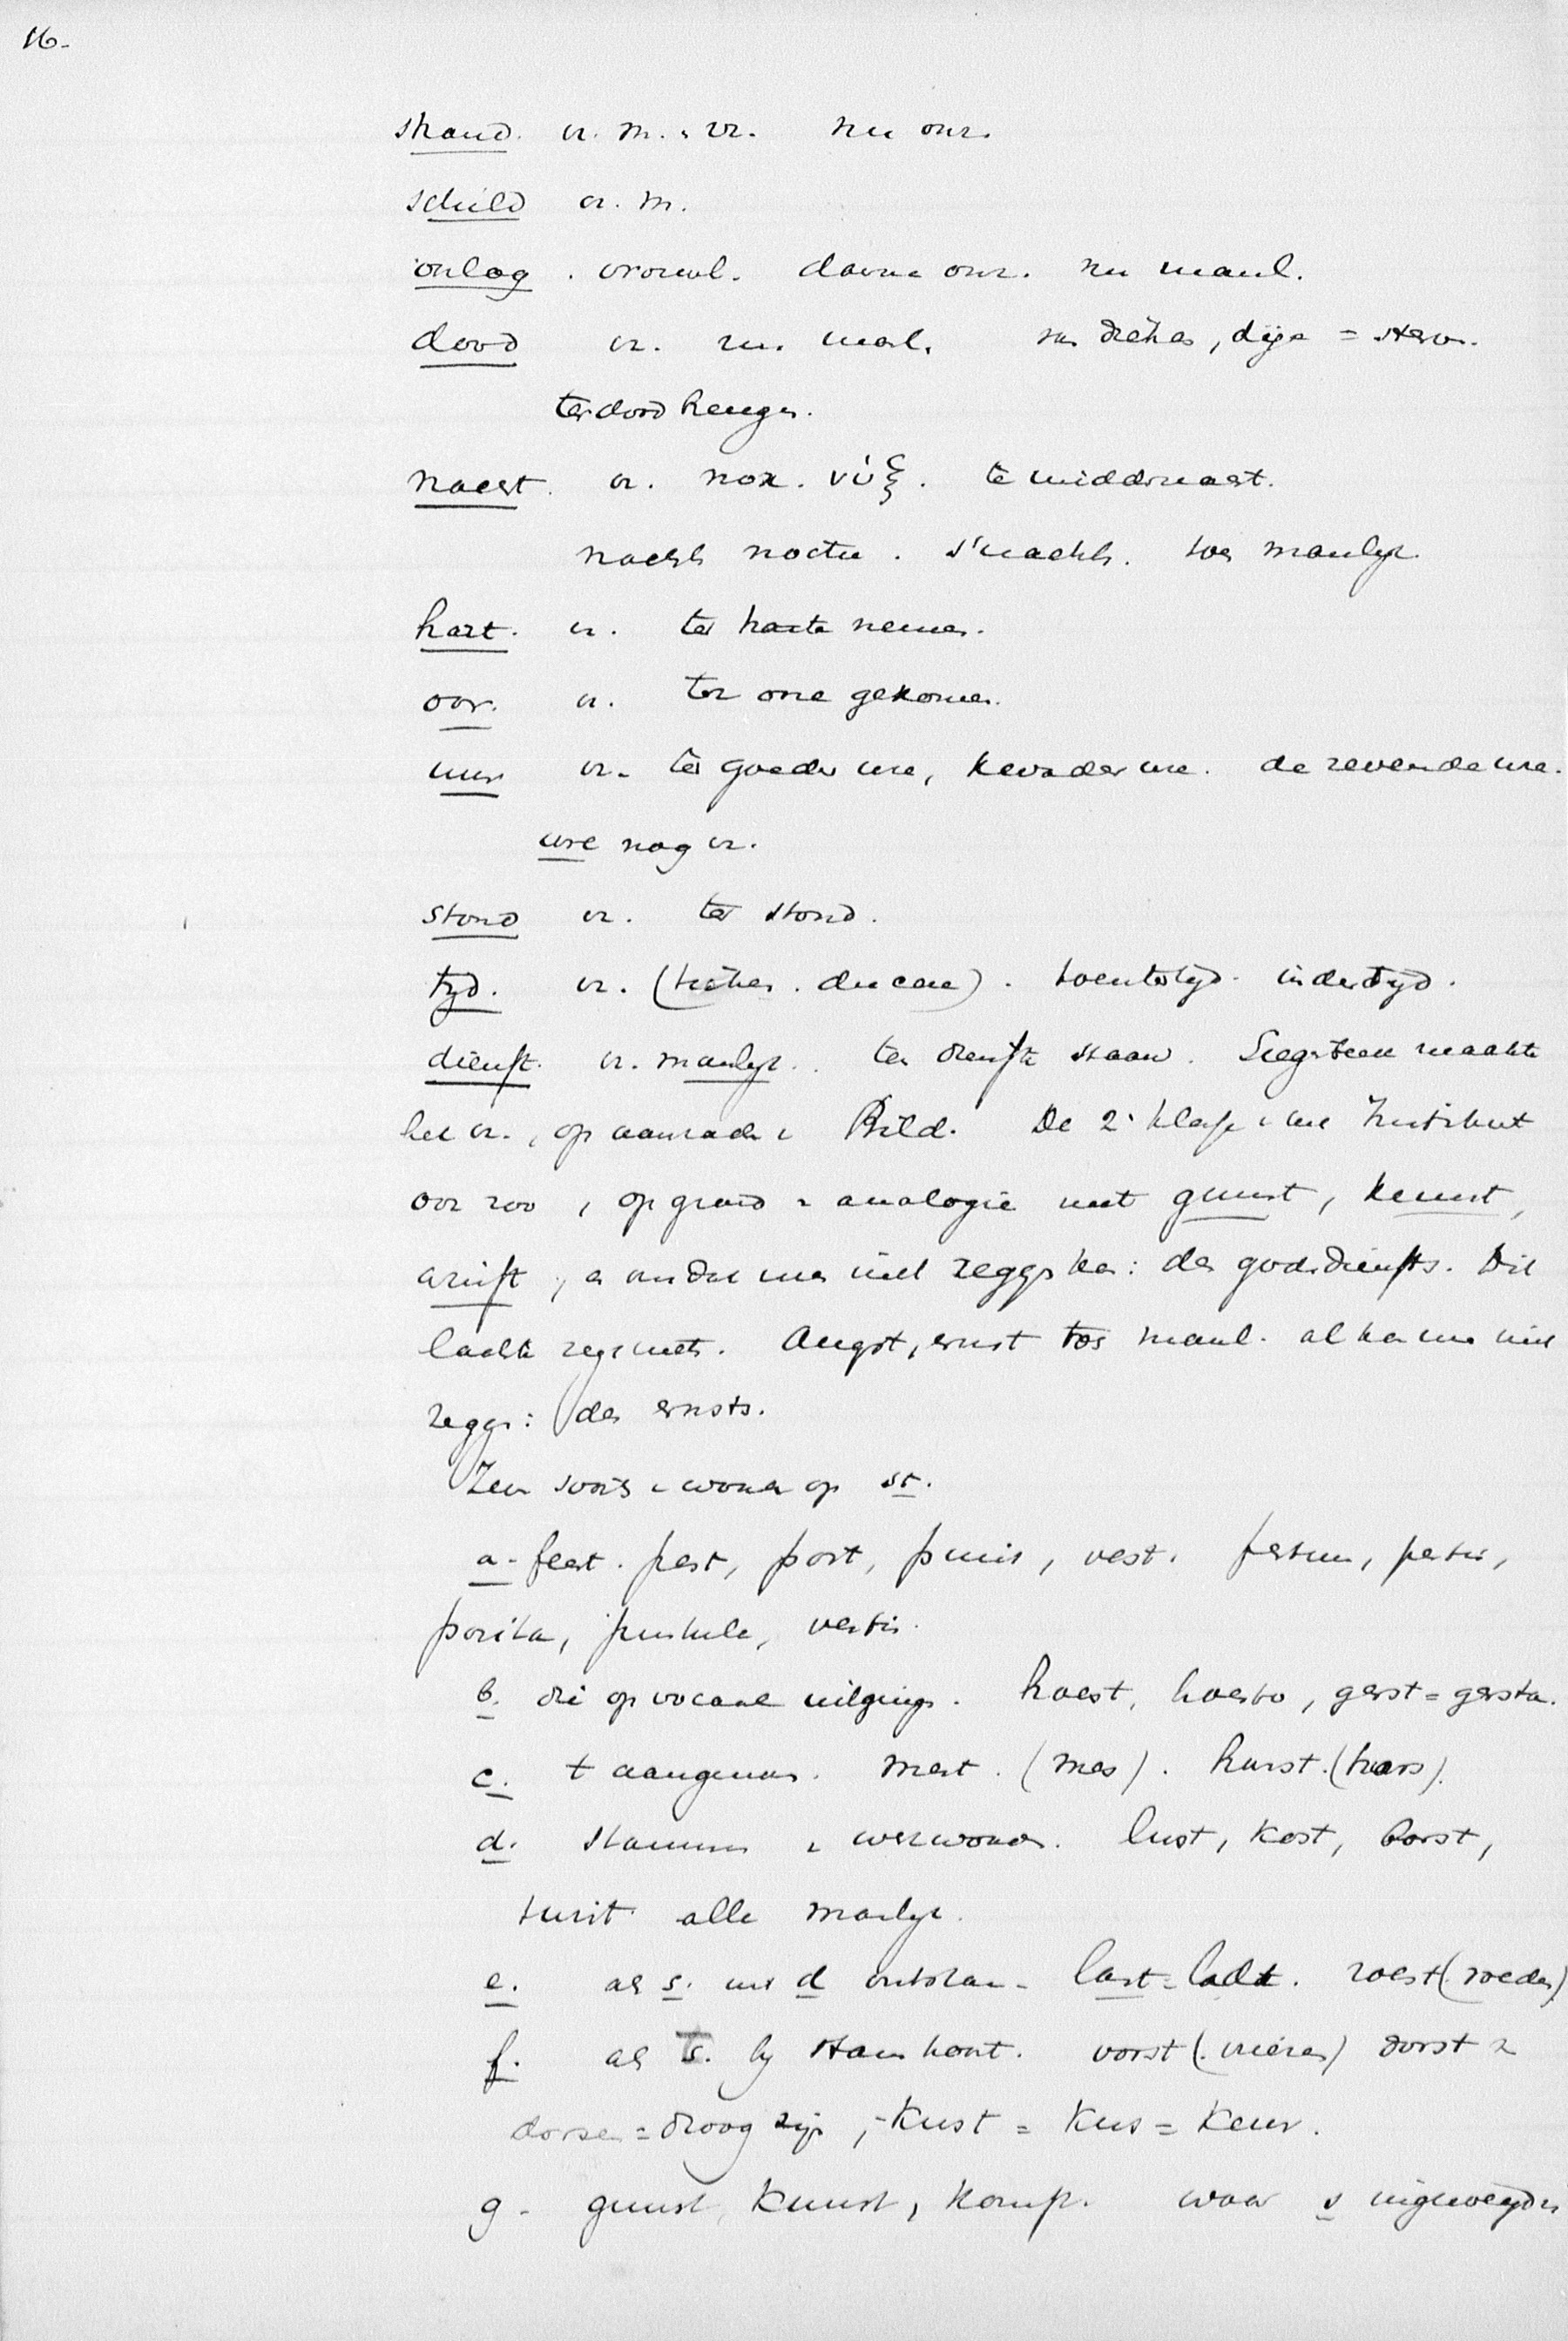 16.
strand. vr. m. vr. nu onz.
schild vr. m.
oorlog. vrouwl. daarna onz. nu manl.
dood vr. nu. manl. dije = sterven.
ter dood brengen.
nacht. vr. nox. νύξ. te middernacht.
nachts noctu. s'nachts. manlyk.
hart. vr. ter harte nemen.
oor. vr. ter oore gekomen.
uur vr. ter goeder ure, kwader ure. de zevende ure.
ure nog vr.
stond vr. ter stond.
tyd. vr. toentertyd. indertyd.
dienst. vr. manlyk. ten dienste staan. Siegenbeek maakte
het vr., op aanraden v. Bild. De 2e klasse v. het Instituut
oor zoo, op grond v. analogie met gunst, kunst,
winst, en omdat men niet zeggen kan: des godsdiensts. Dit
laatste zegt niets. Angst, ernst manl. al kan men niet
zeggen: des ernsts.
Zeven soorten v. woorden op st.
a. feest. pest, post, puist, vest. festum, pestis,
posita, pustula, vestis.
b. die op vocaal uitgingen. hoest, hoesto, gerst = gersta.
c. t aangenomen. mest. (mes). harst. (hars).
d. stammen v. werkwoorden. lust, kost, borst,
twist alle manlyk.
e. als s. uit d ontstaan. last = ladt. roest (roeden)
f. als s. by stam hoort. vorst (. vriezen) dorst v
dorsen = droog zyn, - kust = kus = keur.
g. gunst, kunst, komst. waar s ingevoegd is